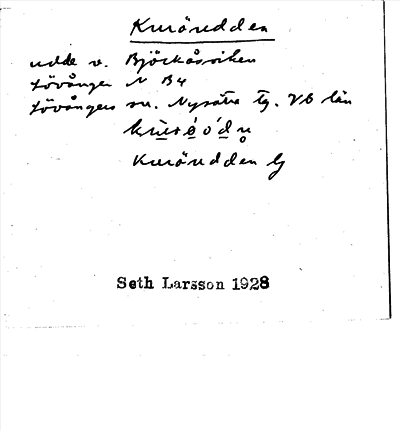 Kuröudden
udde v. Björkåsviken
Lövånger N B4
Lövångers sn. Nysätra tg. Vb län
Kuröudden G
Seth Larsson 1928